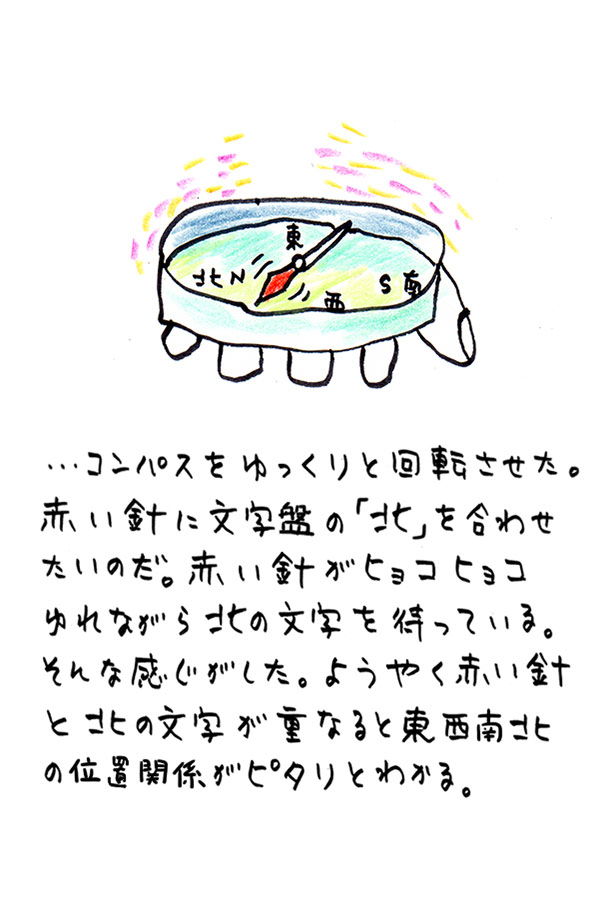 東
北 N
S 南
西
…コンパスをゆっくりと回転させた。
赤い針に文字盤の「北」を合わせ
たいのだ。赤い針がヒョコヒョコ
ゆれながら北の文字を待っている。
そんな感じがした。ようやく赤い針
と北の文字が重なると東西南北
の位置関係がピタリとわかる。